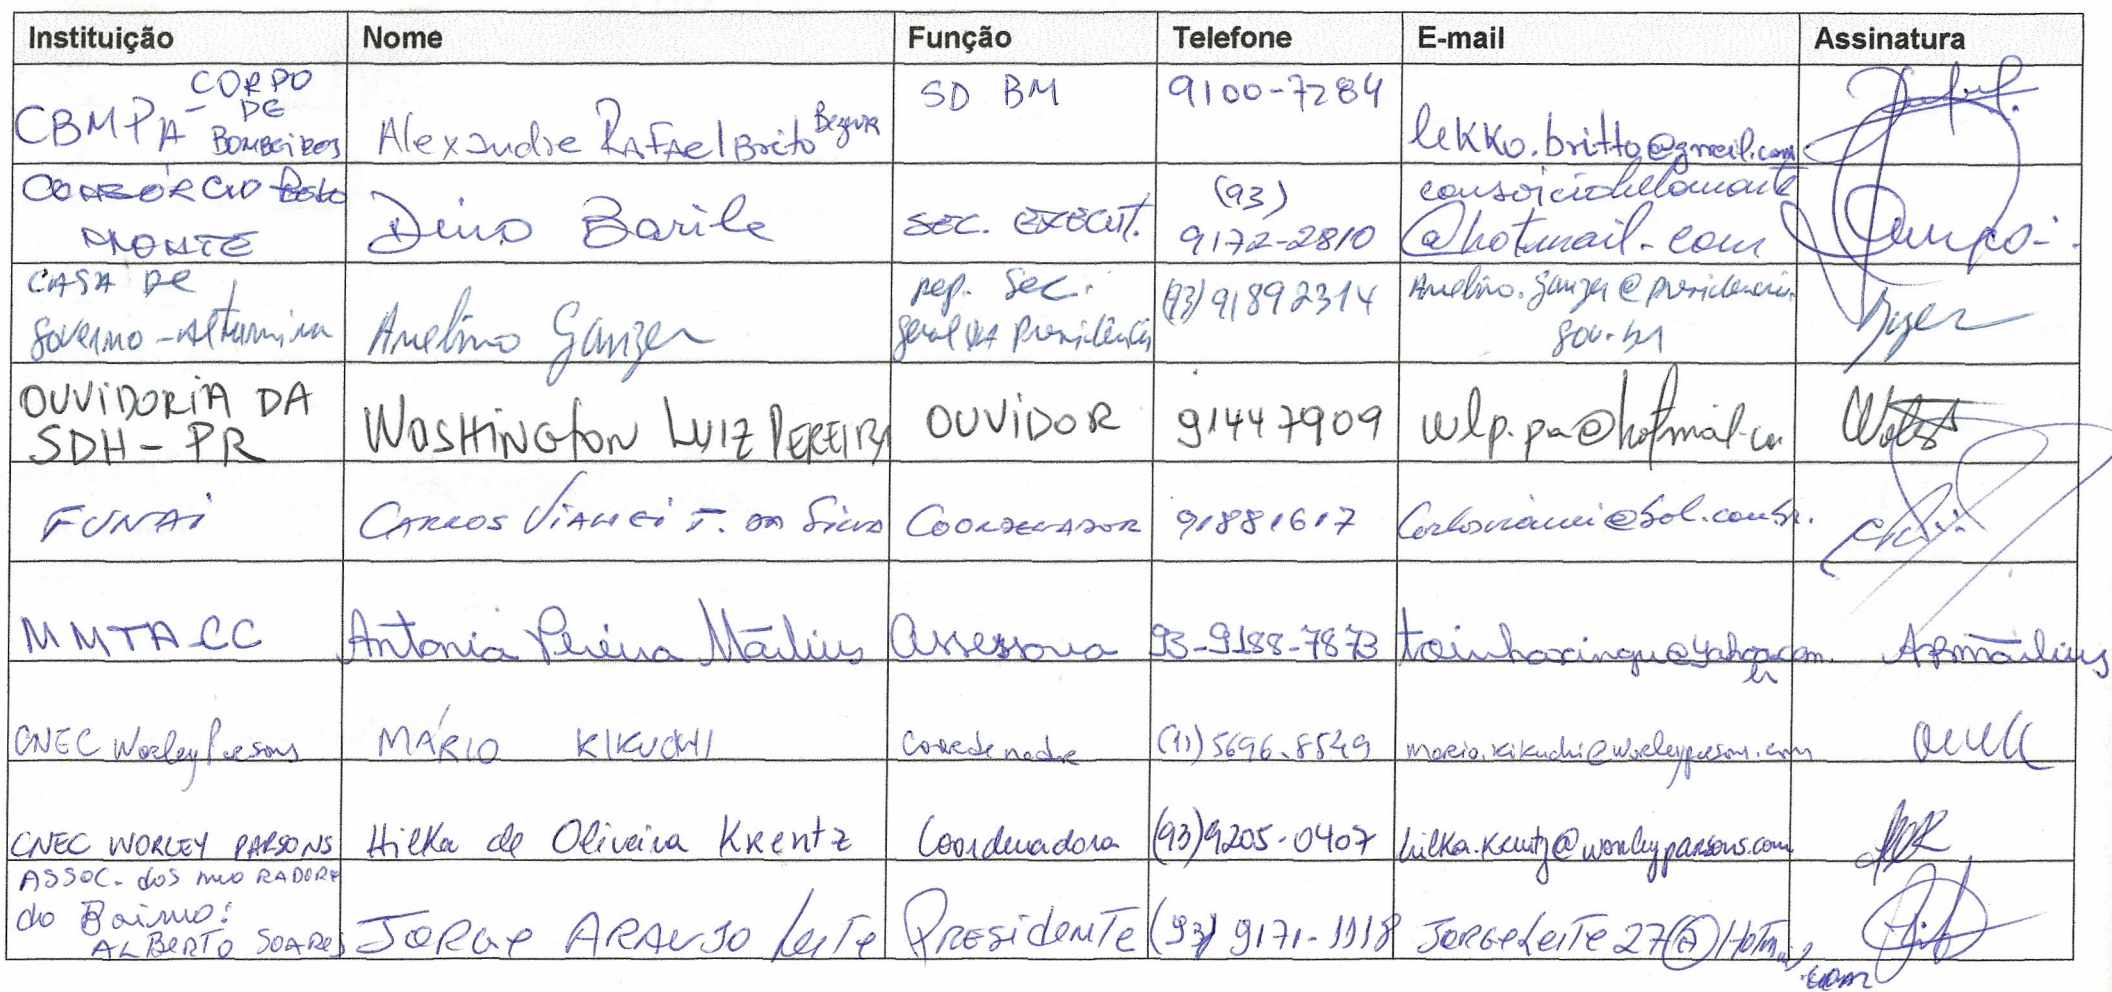 Instituição Nome Função Telefone E-mail Assinatura
CBMPA - CORPO DE BOMBEIROS Alexandre RAFAel Brito Bezerra SD BM 9100-7284 lekko.britto@gmail.com
CONSÓRCIO Belo MONTE Deino Barile SEC. EXECUT. (93) 9172-2810 consorciobelomonte @hotmail.com
CASA DE Governo - Altamira Avelino Ganzer rep. Sec. Geral da Presidência (93) 91892314 Avelino.ganzer@presidencia. gov.br
OUVIDORIA DA SDH - PR WASHINGTON LUIZ PEREIRA OUVIDOR 91447909 wlp.pa@hotmail.com
FUNAI CARLOS VIANEI T. DA Silva COORDENADOR 91881617 Carlosvianei@bol.com.br.
MMTACC Antonia Pereira Martins Assessora 93-9188-7873 toinhaxingu@yahoo.com. br APMartins
CNEC WorleyParsons MÁRIO KIKUCHI Coordenador (11) 5696.8549 mario.kikuchi@worleyparsons.com
CNEC WORLEY PARSONS Hilka de Oliveira Krentz Coordenadora (93) 9205-0407 hilka.krentz@worleyparsons.com
ASSOC. dos moRADORES do Bairro: ALBERTO SOARES JORGE ARAUJO LeiTe PRESidENTE (93) 9171-1118 JORGELeiTe27@HOTmail.com